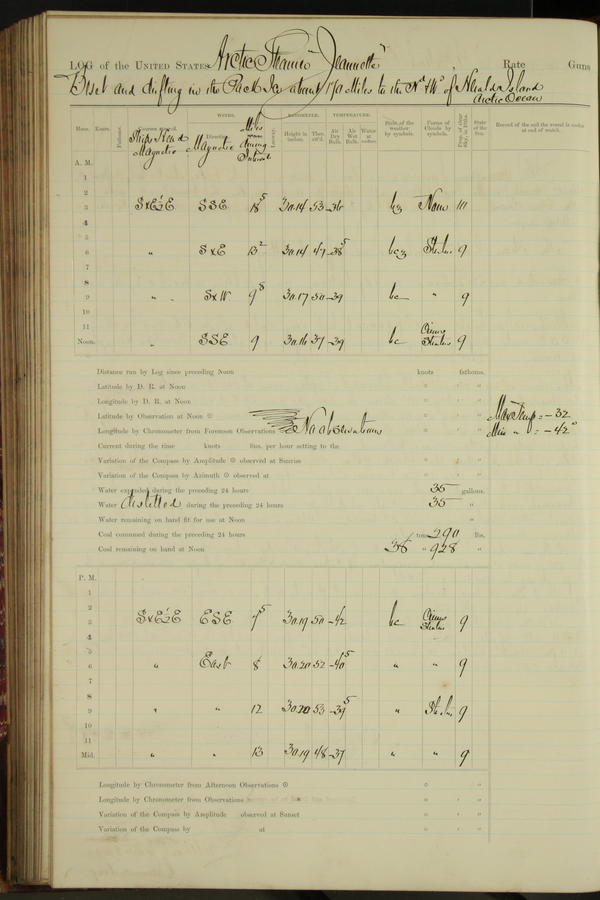 LOG of the UNITED STATES Arctic Steamer "Jeannette" Rate Guns
Beset and drifting in the Pack Ice about 170 Miles to the Nd & Wd of Herald Island
Arctic Ocean
WINDS. BAROMETER. TEMPERATURE.
Hour. Knots. Fathoms. Ship's Head Magnetic Direction Magnetic Miles during Interval Leeway. Height in inches. Ther. att'd. Air Dry Bulb. Air Wet Bulb. Water at surface. State of the weather by symbols. Forms of Clouds by symbols. Prop. of clear Sky, in 10ths. State of the Sea. Record of the sail the vessel is under at end of watch.
A. M.
1
2
3 SxE½E SSE 18⁵ 30.14 53 -36 bz None 10
4
5
6 " SxE 13² 30.14 47 -38⁵ bcz Stratus 9
7
8
9 " SxW 9⁸ 30.17 50 -39 bc " 9
10
11
Noon. " SSE 9 30.16 37 -39 bc Cirrus Stratus 9
Distance run by Log since preceding Noon knots fathoms.
Latitude by D. R. at Noon ° ' "
Longitude by D. R. at Noon ° ' "
Latitude by Observation at Noon ☉ ° ' " Max Temp = -32
Longitude by Chronometer from Forenoon Observations No observations ° ' " Min " = -42°
Current during the time knots fms. per hour setting to the
Variation of the Compass by Amplitude ☉ observed at Sunrise ° ' "
Variation of the Compass by Azimuth ☉ observed at ° ' "
Water expended during the preceding 24 hours 35 gallons.
Water distilled during the preceding 24 hours 35 "
Water remaining on hand fit for use at Noon "
Coal consumed during the preceding 24 hours tons 290 lbs.
Coal remaining on hand at Noon 36 " 928 "
P. M.
1
2
3 SxE½E ESE 7⁵ 30.19 50 -42 bc Cirrus Stratus 9
4
5
6 " East 8 30.20 52 -40⁵ " " 9
7
8
9 " " 12 30.20 53 -39⁵ " Stratus 9
10
11
Mid. " " 13 30.19 48 -37 " " 9
Longitude by Chronometer from Afternoon Observations ☉ ° ' "
Longitude by Chronometer from Observations ° ' "
Variation of the Compass by Amplitude observed at Sunset ° ' "
Variation of the Compass by at ° ' "